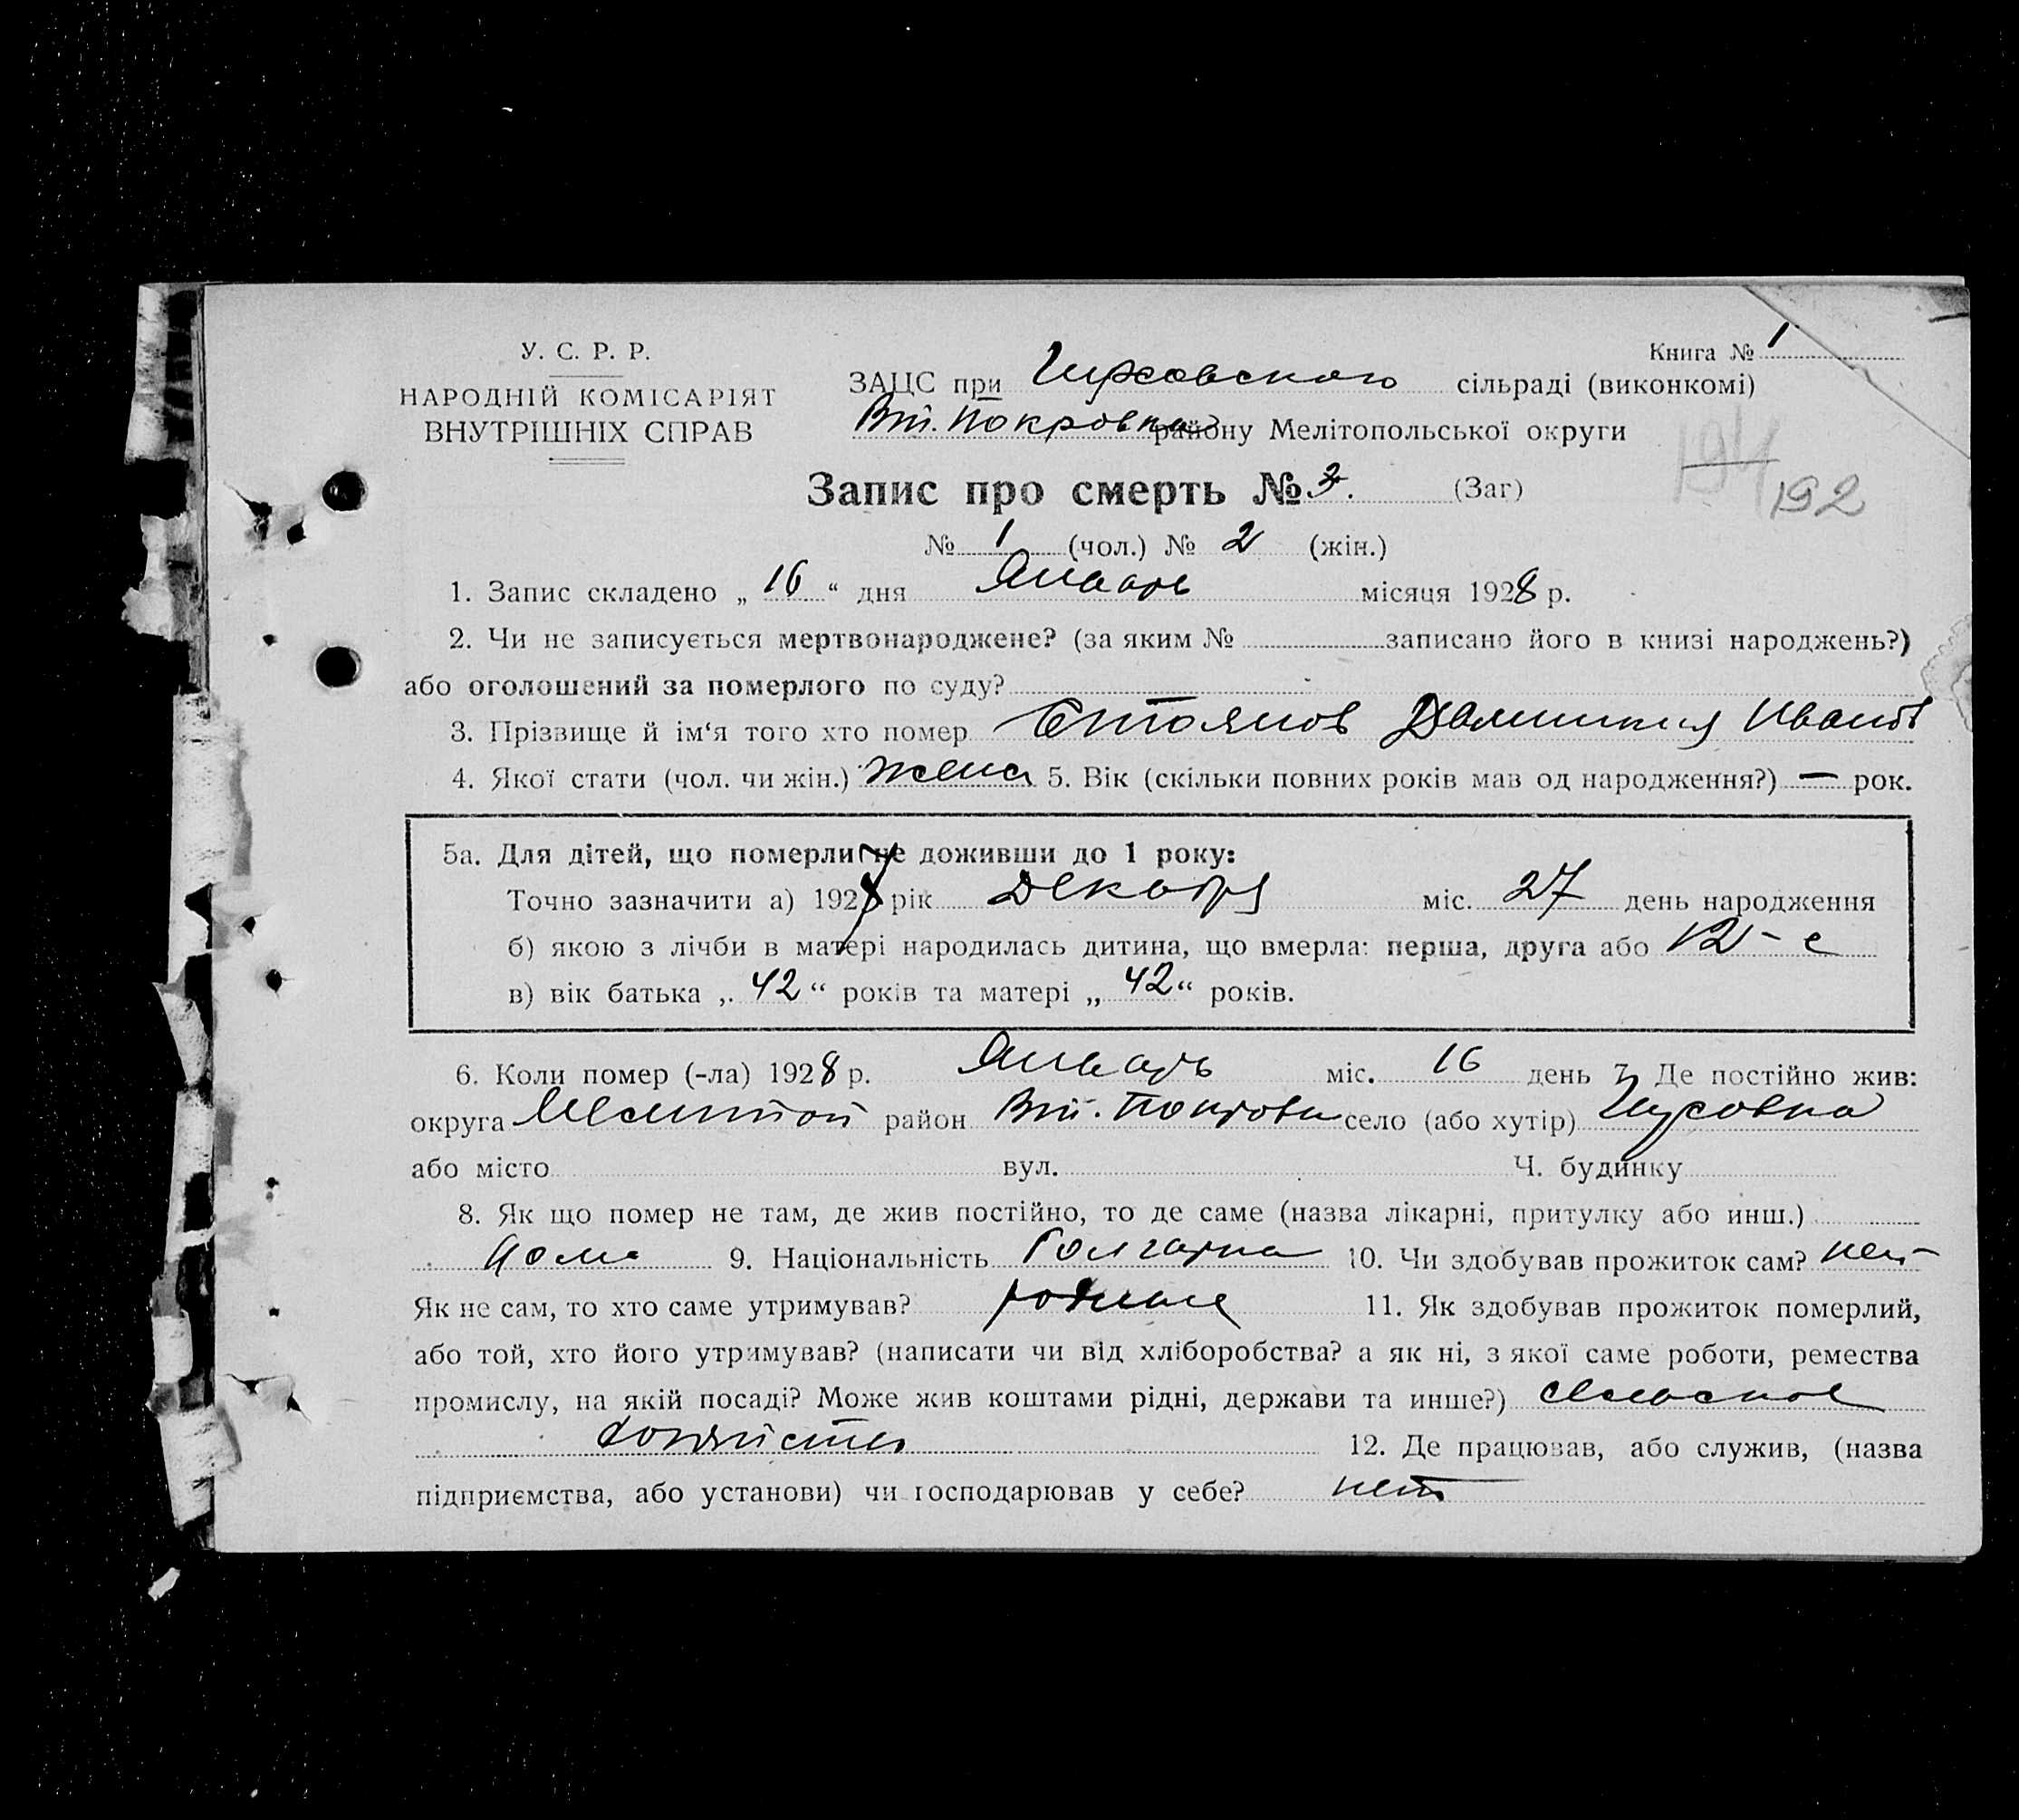 У. С. Р. Р.
НАРОДНІЙ КОМІСАРІЯТ
ВНУТРІШНІХ СПРАВ
Книга № 1
ЗАЦС при Гирсовского сільраді (виконкомі)
Вт. Покровка району Мелітопольської округи
Запис про смерть № 3. (Заг)
191 192
№ 1 (чол.) № 2 (жін.)
1. Запис складено „ 16 “ дня Январь місяця 1928 р.
2. Чи не записується мертвонароджене? (за яким № записано його в книзі народжень?)
або оголошений за померлого по суду?
3. Прізвище й ім‘я того хто помер Стоянов Иванов
4. Якої стати (чол. чи жін.) жена 5. Вік (скільки повних років мав од народження?) — рок.
5а. Для дітей, що померли не доживши до 1 року:
Точно зазначити а) 1927 рік Декабря міс. 27 день народження
б) якою з лічби в матері народилась дитина, що вмерла: перша, друга або 12-е
в) вік батька „ 42 “ років та матері „ 42 “ років.
6. Коли помер (-ла) 1928 р. Январь міс. 16 день 7. Де постійно жив:
округа Мелитоп район Вт. Покровк село (або хутір) Гирсовка
або місто вул. Ч. будинку
8. Як що помер не там, де жив постійно, то де саме (назва лікарні, притулку або инш.)
дома 9. Національність Болгарка 10. Чи здобував прожиток сам? нет
Як не сам, то хто саме утримував? родные 11. Як здобував прожиток померлий,
або той, хто його утримував? (написати чи від хліборобства? а як ні, з якої саме роботи, ремества
промислу, на якій посаді? Може жив коштами рідні, держави та инше?) сельское
хозяйство 12. Де працював, або служив, (назва
підприємства, або установи) чи господарював у себе? нет